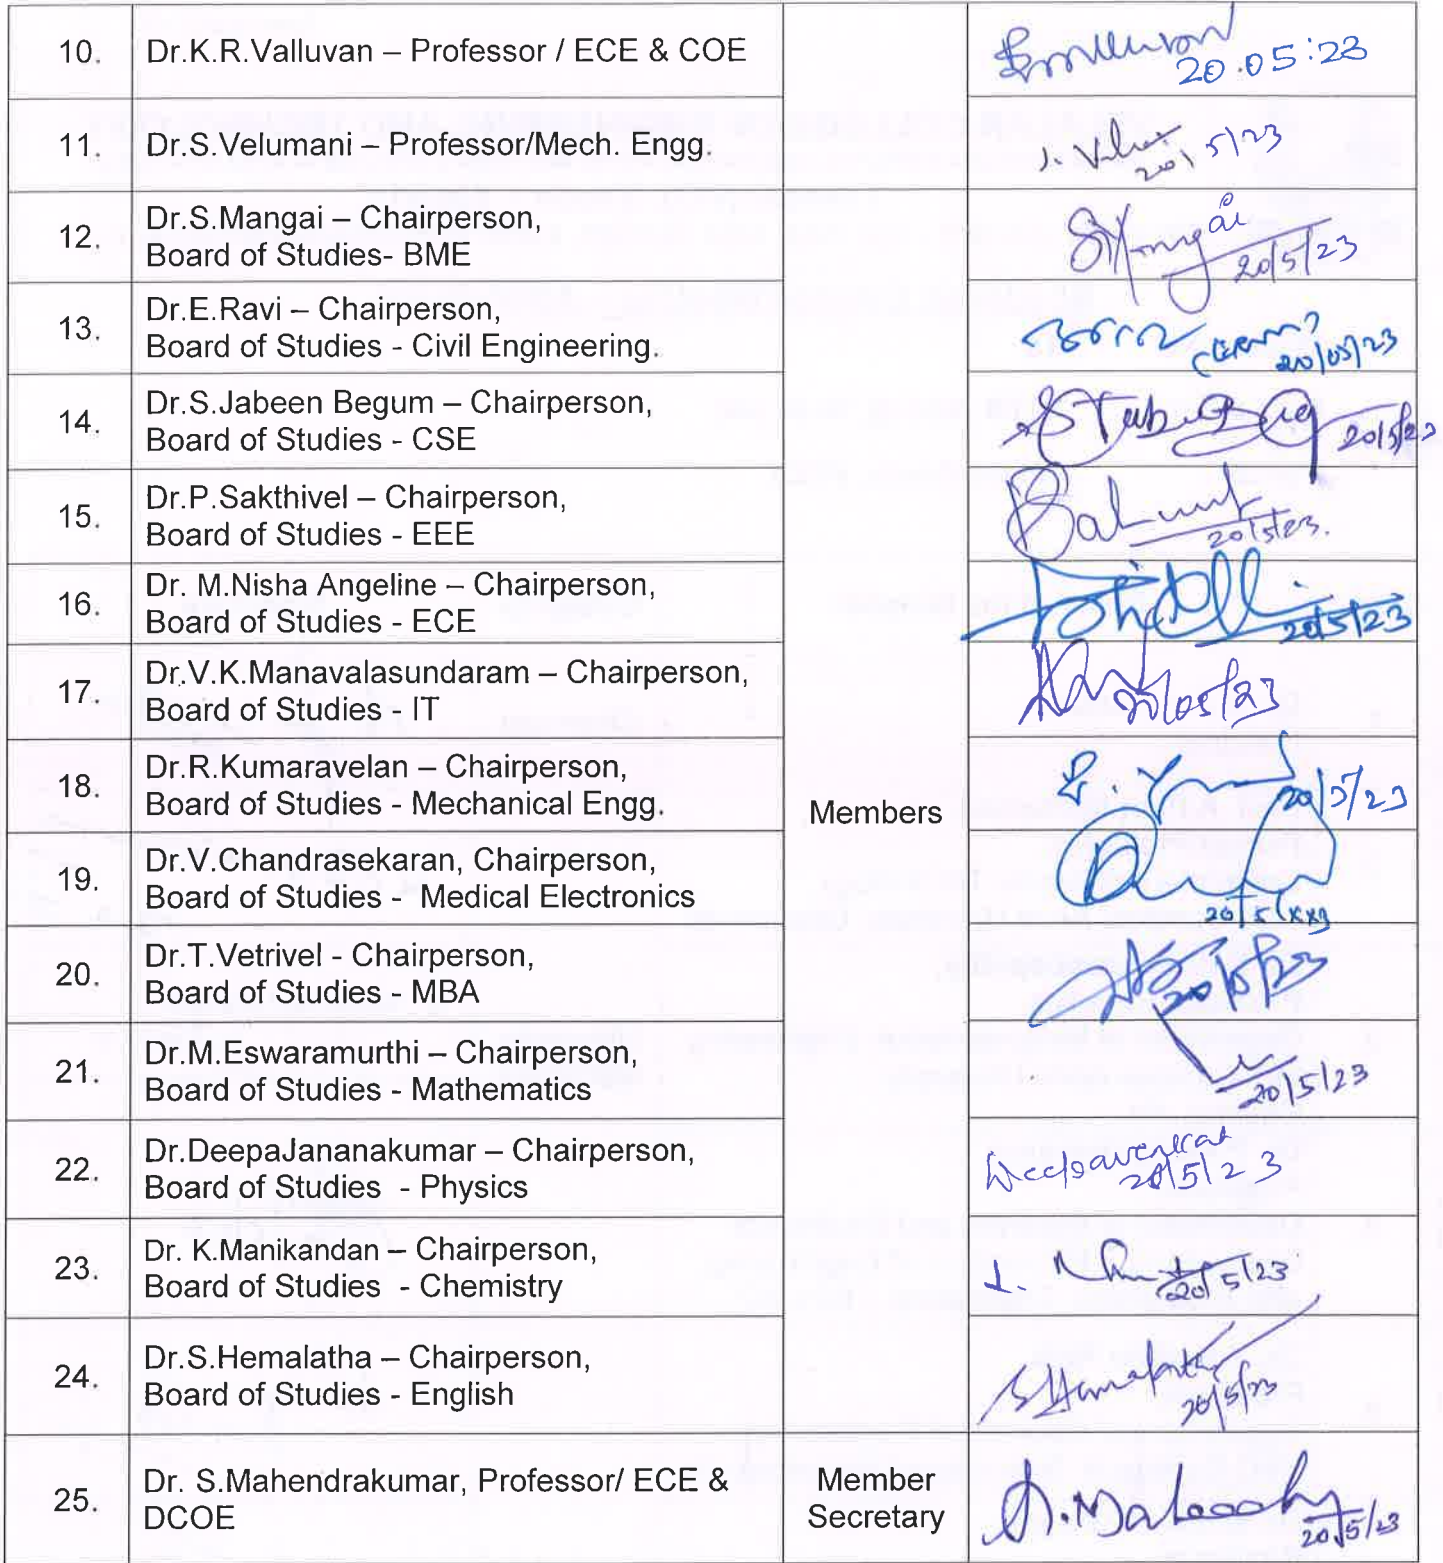 10. Dr.K.R.Valluvan – Professor / ECE & COE
20.05:23
11. Dr.S.Velumani – Professor/Mech. Engg.
20/5/23
12. Dr.S.Mangai – Chairperson,
Board of Studies- BME
20/5/23
13. Dr.E.Ravi – Chairperson,
Board of Studies - Civil Engineering.
20/05/23
14. Dr.S.Jabeen Begum – Chairperson,
Board of Studies - CSE
20/5/23
15. Dr.P.Sakthivel – Chairperson,
Board of Studies - EEE
20/5/23.
16. Dr. M.Nisha Angeline – Chairperson,
Board of Studies - ECE
20/5/23
17. Dr.V.K.Manavalasundaram – Chairperson,
Board of Studies - IT
20/05/23
18. Dr.R.Kumaravelan – Chairperson,
Board of Studies - Mechanical Engg.
20/5/23
Members
19. Dr.V.Chandrasekaran, Chairperson,
Board of Studies - Medical Electronics
20. Dr.T.Vetrivel - Chairperson,
Board of Studies - MBA
20/5/23
21. Dr.M.Eswaramurthi – Chairperson,
Board of Studies - Mathematics
20/5/23
22. Dr.DeepaJananakumar – Chairperson,
Board of Studies - Physics
20/5/23
23. Dr. K.Manikandan – Chairperson,
Board of Studies - Chemistry
20/5/23
24. Dr.S.Hemalatha – Chairperson,
Board of Studies - English
20/5/23
25. Dr. S.Mahendrakumar, Professor/ ECE &
DCOE
Member
Secretary
20/5/23